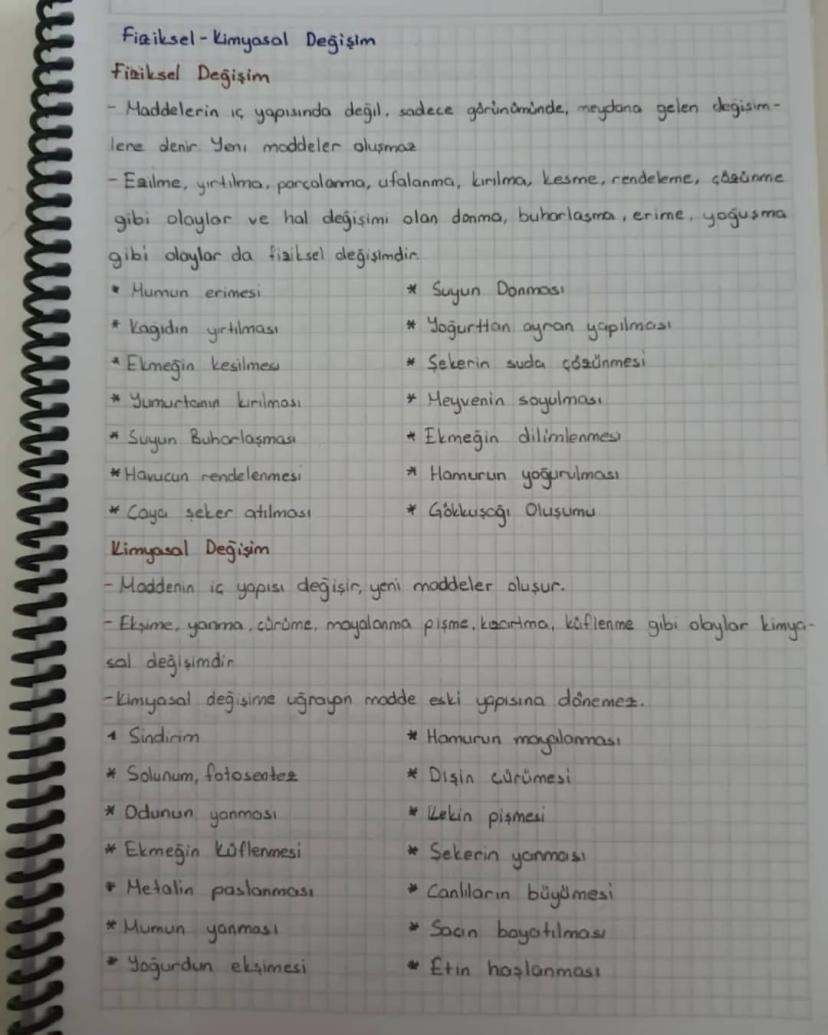 Fiziksel - Kimyasal Değişim
Fiziksel Değişim
- Maddelerin iç yapısında değil, sadece görünümünde, meydana gelen değişim-
lere denir. Yeni maddeler oluşmaz
- Ezilme, yırtılma, parçalanma, ufalanma, kırılma, kesme, rendeleme, çözünme
gibi olaylar ve hal değişimi olan donma, buharlaşma, erime, yoğuşma
gibi olaylar da fiziksel değişimdir.
* Mumun erimesi
* Kağıdın yırtılması
* Ekmeğin kesilmesi
* Yumurtanın kırılması
* Suyun Buharlaşması
* Havucun rendelenmesi
* Çaya şeker atılması
* Suyun Donması
* Yoğurttan ayran yapılması
* Şekerin suda çözünmesi
* Meyvenin soyulması
* Ekmeğin dilimlenmesi
* Hamurun yoğurulması
* Gökkuşağı Oluşumu
Kimyasal Değişim
- Maddenin iç yapısı değişir, yeni maddeler oluşur.
- Ekşime, yanma, çürüme, mayalanma pişme, kızartma, küflenme gibi olaylar kimya-
sal değişimdir
- Kimyasal değişime uğrayan madde eski yapısına dönemez.
* Sindirim
* Solunum, fotosentez
* Odunun yanması
* Ekmeğin Küflenmesi
* Metalin paslanması
* Mumun yanması
* Yoğurdun ekşimesi
* Hamurun mayalanması
* Dişin çürümesi
* Kekin pişmesi
* Şekerin yanması
* Canlıların büyümesi
* Saçın boyatılması
* Etin haşlanması